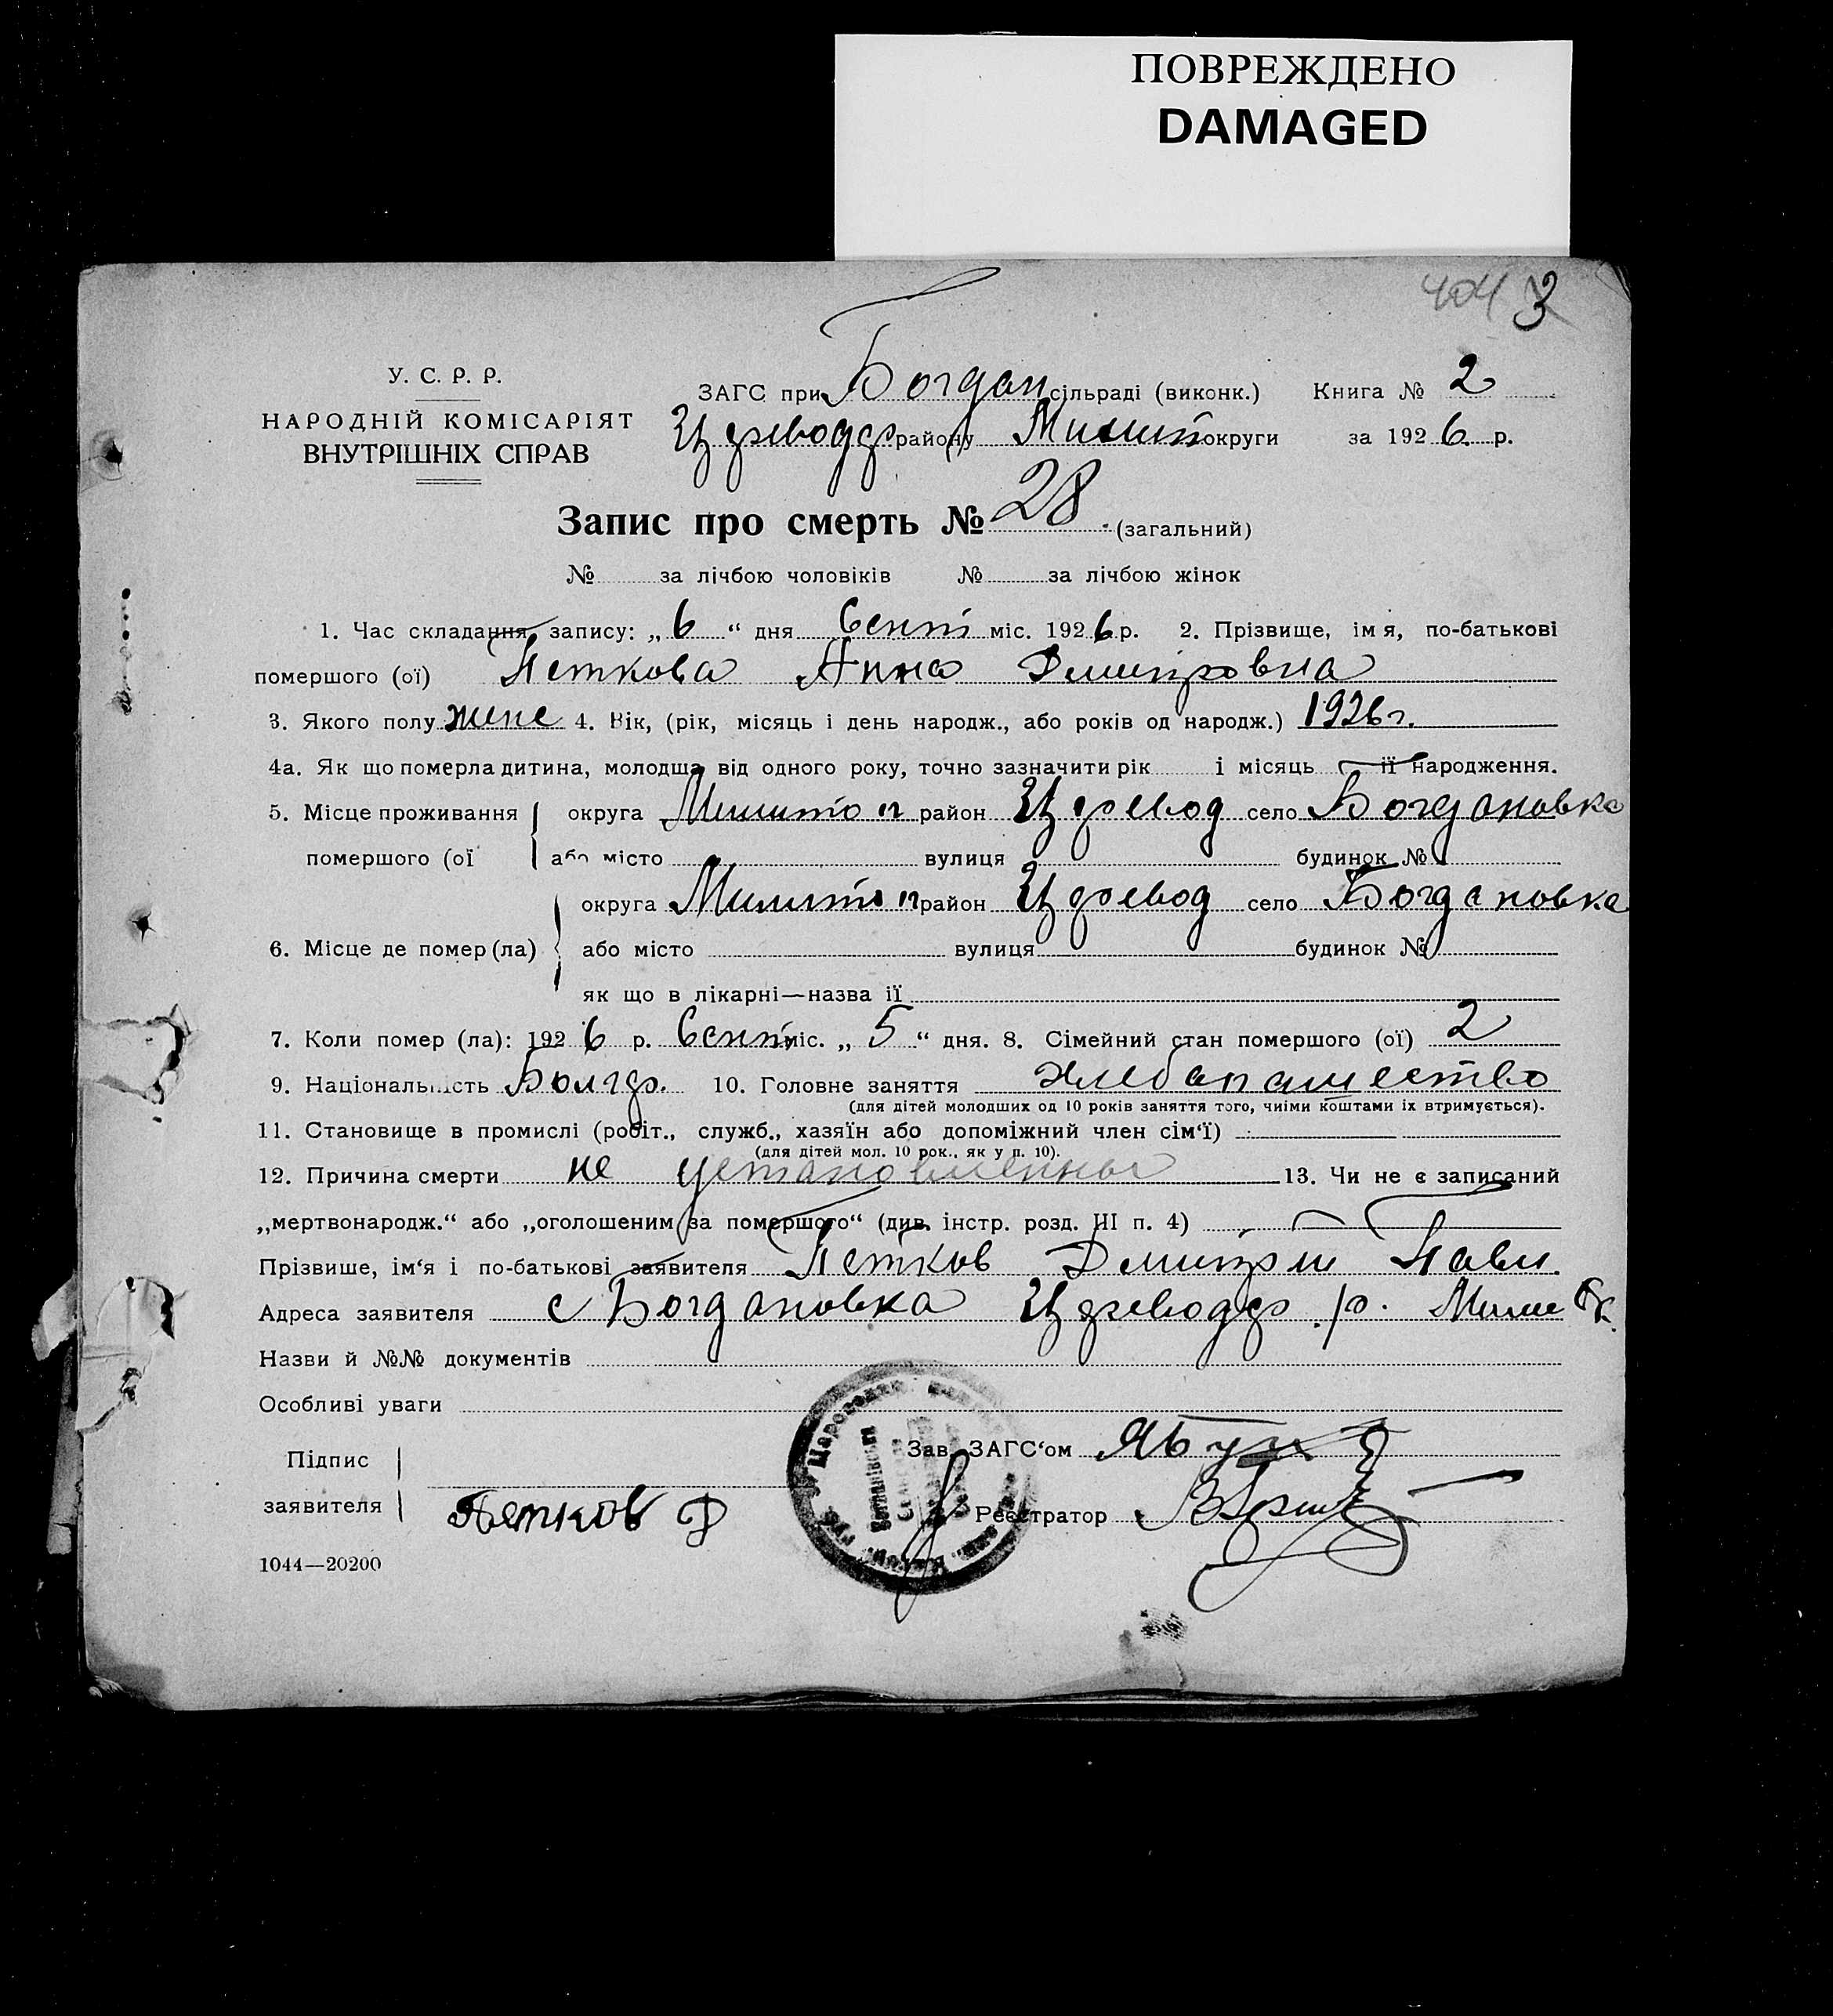 ПОВРЕЖДЕНО
DAMAGED
404 3
У. С. Р. Р.
НАРОДНІЙ КОМІСАРІЯТ
ВНУТРІШНІХ СПРАВ
ЗАГС при Богдан сільраді (виконк.) Книга № 2
району округи за 1926 р.
Запис про смерть № 28. (загальний)
№ за лічбою чоловіків № за лічбою жінок
1. Час складання запису: „6“ дня Сент міс. 1926 р. 2. Прізвище, імя, по-батькові
помершого (ої) Петкова Анна Дмитровна
3. Якого полу женс 4. Вік, (рік, місяць і день народж., або років од народж.) 1926 г.
4а. Як що померла дитина, молодша від одного року, точно зазначити рік і місяць її народження.
5. Місце проживання округа Мелитоп район Цяревод село Богдановка
помершого (ої або місто вулиця будинок №
округа Мелитоп район Цяревод село Богдановка
6. Місце де помер (ла) або місто вулиця будинок №
як що в лікарні—назва її
7. Коли помер (ла): 1926 р. Сент міс. „5“ дня. 8. Сімейний стан помершого (ої) 2
9. Національність Болгар. 10. Головне заняття хлебопашество
(для дітей молодших од 10 років заняття того, чиїми коштами їх втримується).
11. Становище в промислі (робіт., служб., хазяїн або допоміжний член сім‘ї)
(для дітей мол. 10 рок., як у п. 10).
12. Причина смерти не установленны 13. Чи не є записаний
„мертвонародж.“ або „оголошеним за помершого“ (див. інстр. розд. III п. 4)
Прізвише, ім‘я і по-батькові заявителя Петков Дмитрий Павл.
Адреса заявителя с Богдановка р.
Назви й №№ документів
Особливі уваги
Підпис
заявителя Петков Д
Зав. ЗАГС‘ом
Реєстратор
1044—20200